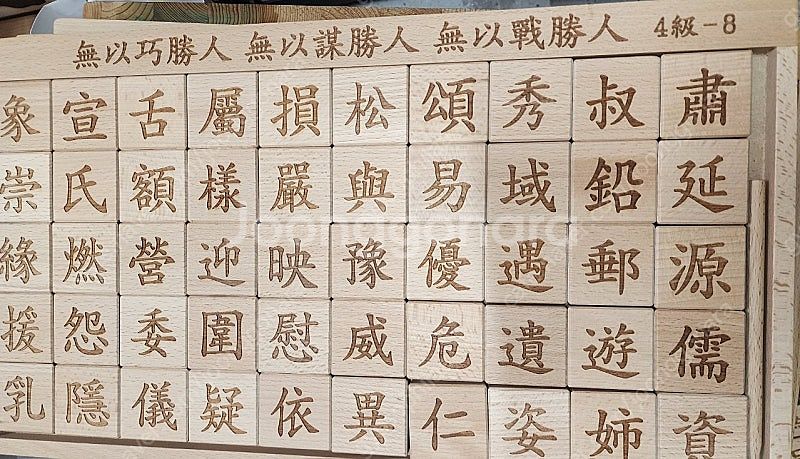 無以巧勝人 無以謀勝人 無以戰勝人 4級-8
象 宣 舌 屬 損 松 頌 秀 叔 肅
崇 氏 額 樣 嚴 與 易 域 鉛 延
緣 燃 營 迎 映 豫 優 遇 郵 源
援 怨 委 圍 慰 威 危 遺 遊 儒
乳 隱 儀 疑 依 異 仁 姿 姉 資
Joonggonara